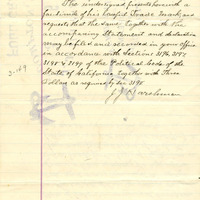 The undersigned presents herewith a
facsimile of his lawful Trade Mark, and
requests that the same, together with the
accompanying Statement and declaration
may be filed and recorded in your Office
in accordance with Sections 3196, 3197,
3198 & 3199 of the Political Code of the
State of California, together with Three
Dollars as required by Sec 3198